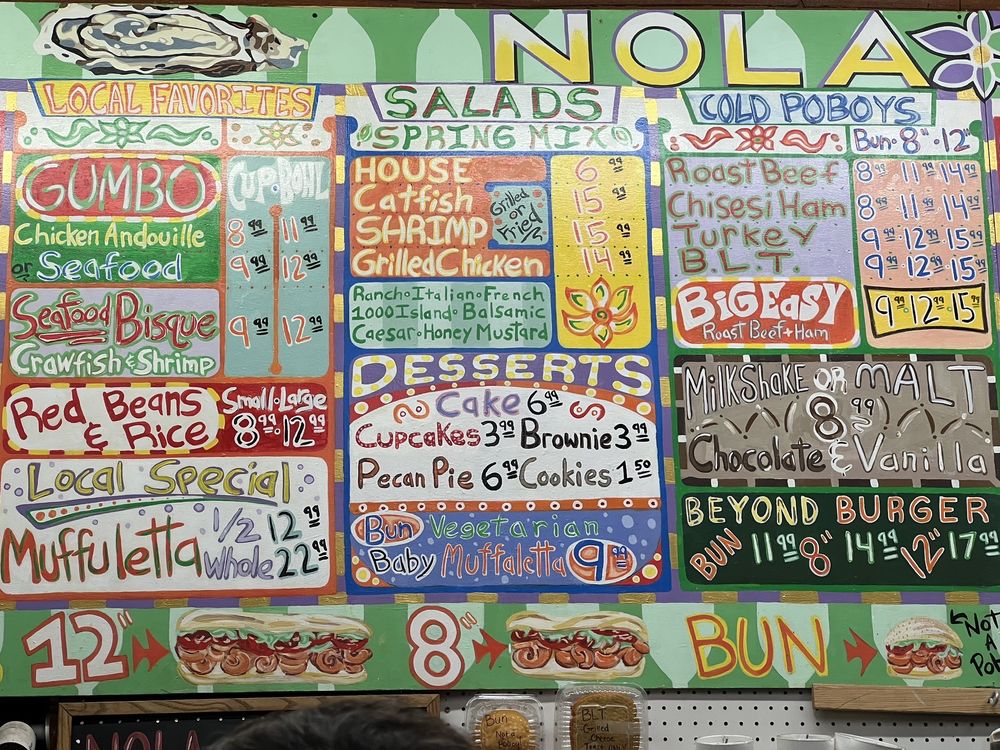 NOLA
LOCAL FAVORITES
CUP·BOWL
GUMBO
Chicken Andouille 8.99 11.99
or Seafood 9.99 12.99
Seafood Bisque 9.99 12.99
Crawfish & Shrimp
Red Beans & Rice
Small·Large
8.99·12.99
Local Special
Muffuletta
1/2 12.99
Whole 22.99
SALADS
SPRING MIX
HOUSE 6.99
Catfish 15.99
SHRIMP 15.99
Grilled or Fried
Grilled Chicken 14.99
Ranch·Italian·French
1000 Island·Balsamic
Caesar·Honey Mustard
DESSERTS
Cake 6.99
Cupcakes 3.99 Brownie 3.99
Pecan Pie 6.99 Cookies 1.50
Bun Vegetarian
Baby Muffaletta 9.99
COLD POBOYS
Bun·8"·12"
Roast Beef 8.99 11.99 14.99
Chisesi Ham 8.99 11.99 14.99
Turkey 9.99 12.99 15.99
B.L.T. 9.99 12.99 15.99
BiG EASY 9.99·12.99·15.99
Roast Beef + Ham
MilkShake OR MALT
8.99
Chocolate & Vanilla
BEYOND BURGER
BUN 11.99 8" 14.99 12" 17.99
12" 8" BUN
Not
A
NOLA
Bun
Not a
Poboy
BLT
Grilled
Cheese